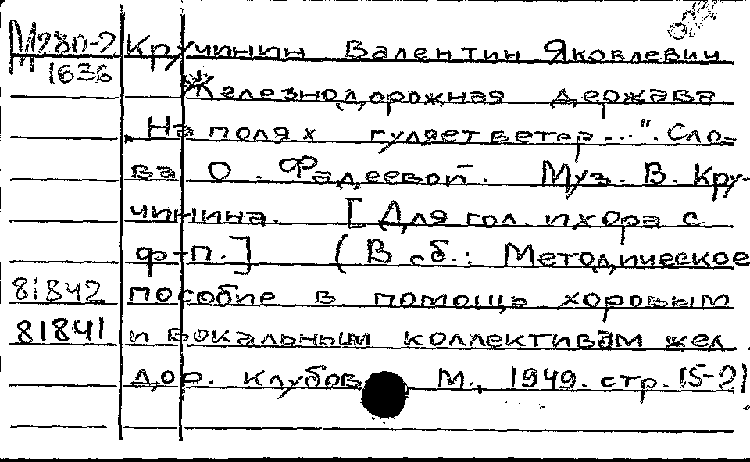 М280-2 Кручинин Валентин Яковлевич
1636 Железнодорожная держава
„На полях гуляет ветер...". Сло-
ва О. Фадеевой. Муз. В. Кру-
чинина. [Для гол. и хора с
ф-п.] (В сб.: Методическое
81842 пособие в помощь хоровым
81841 и вокальным коллективам жел.
дор. клубов М., 1949. стр. 15-21